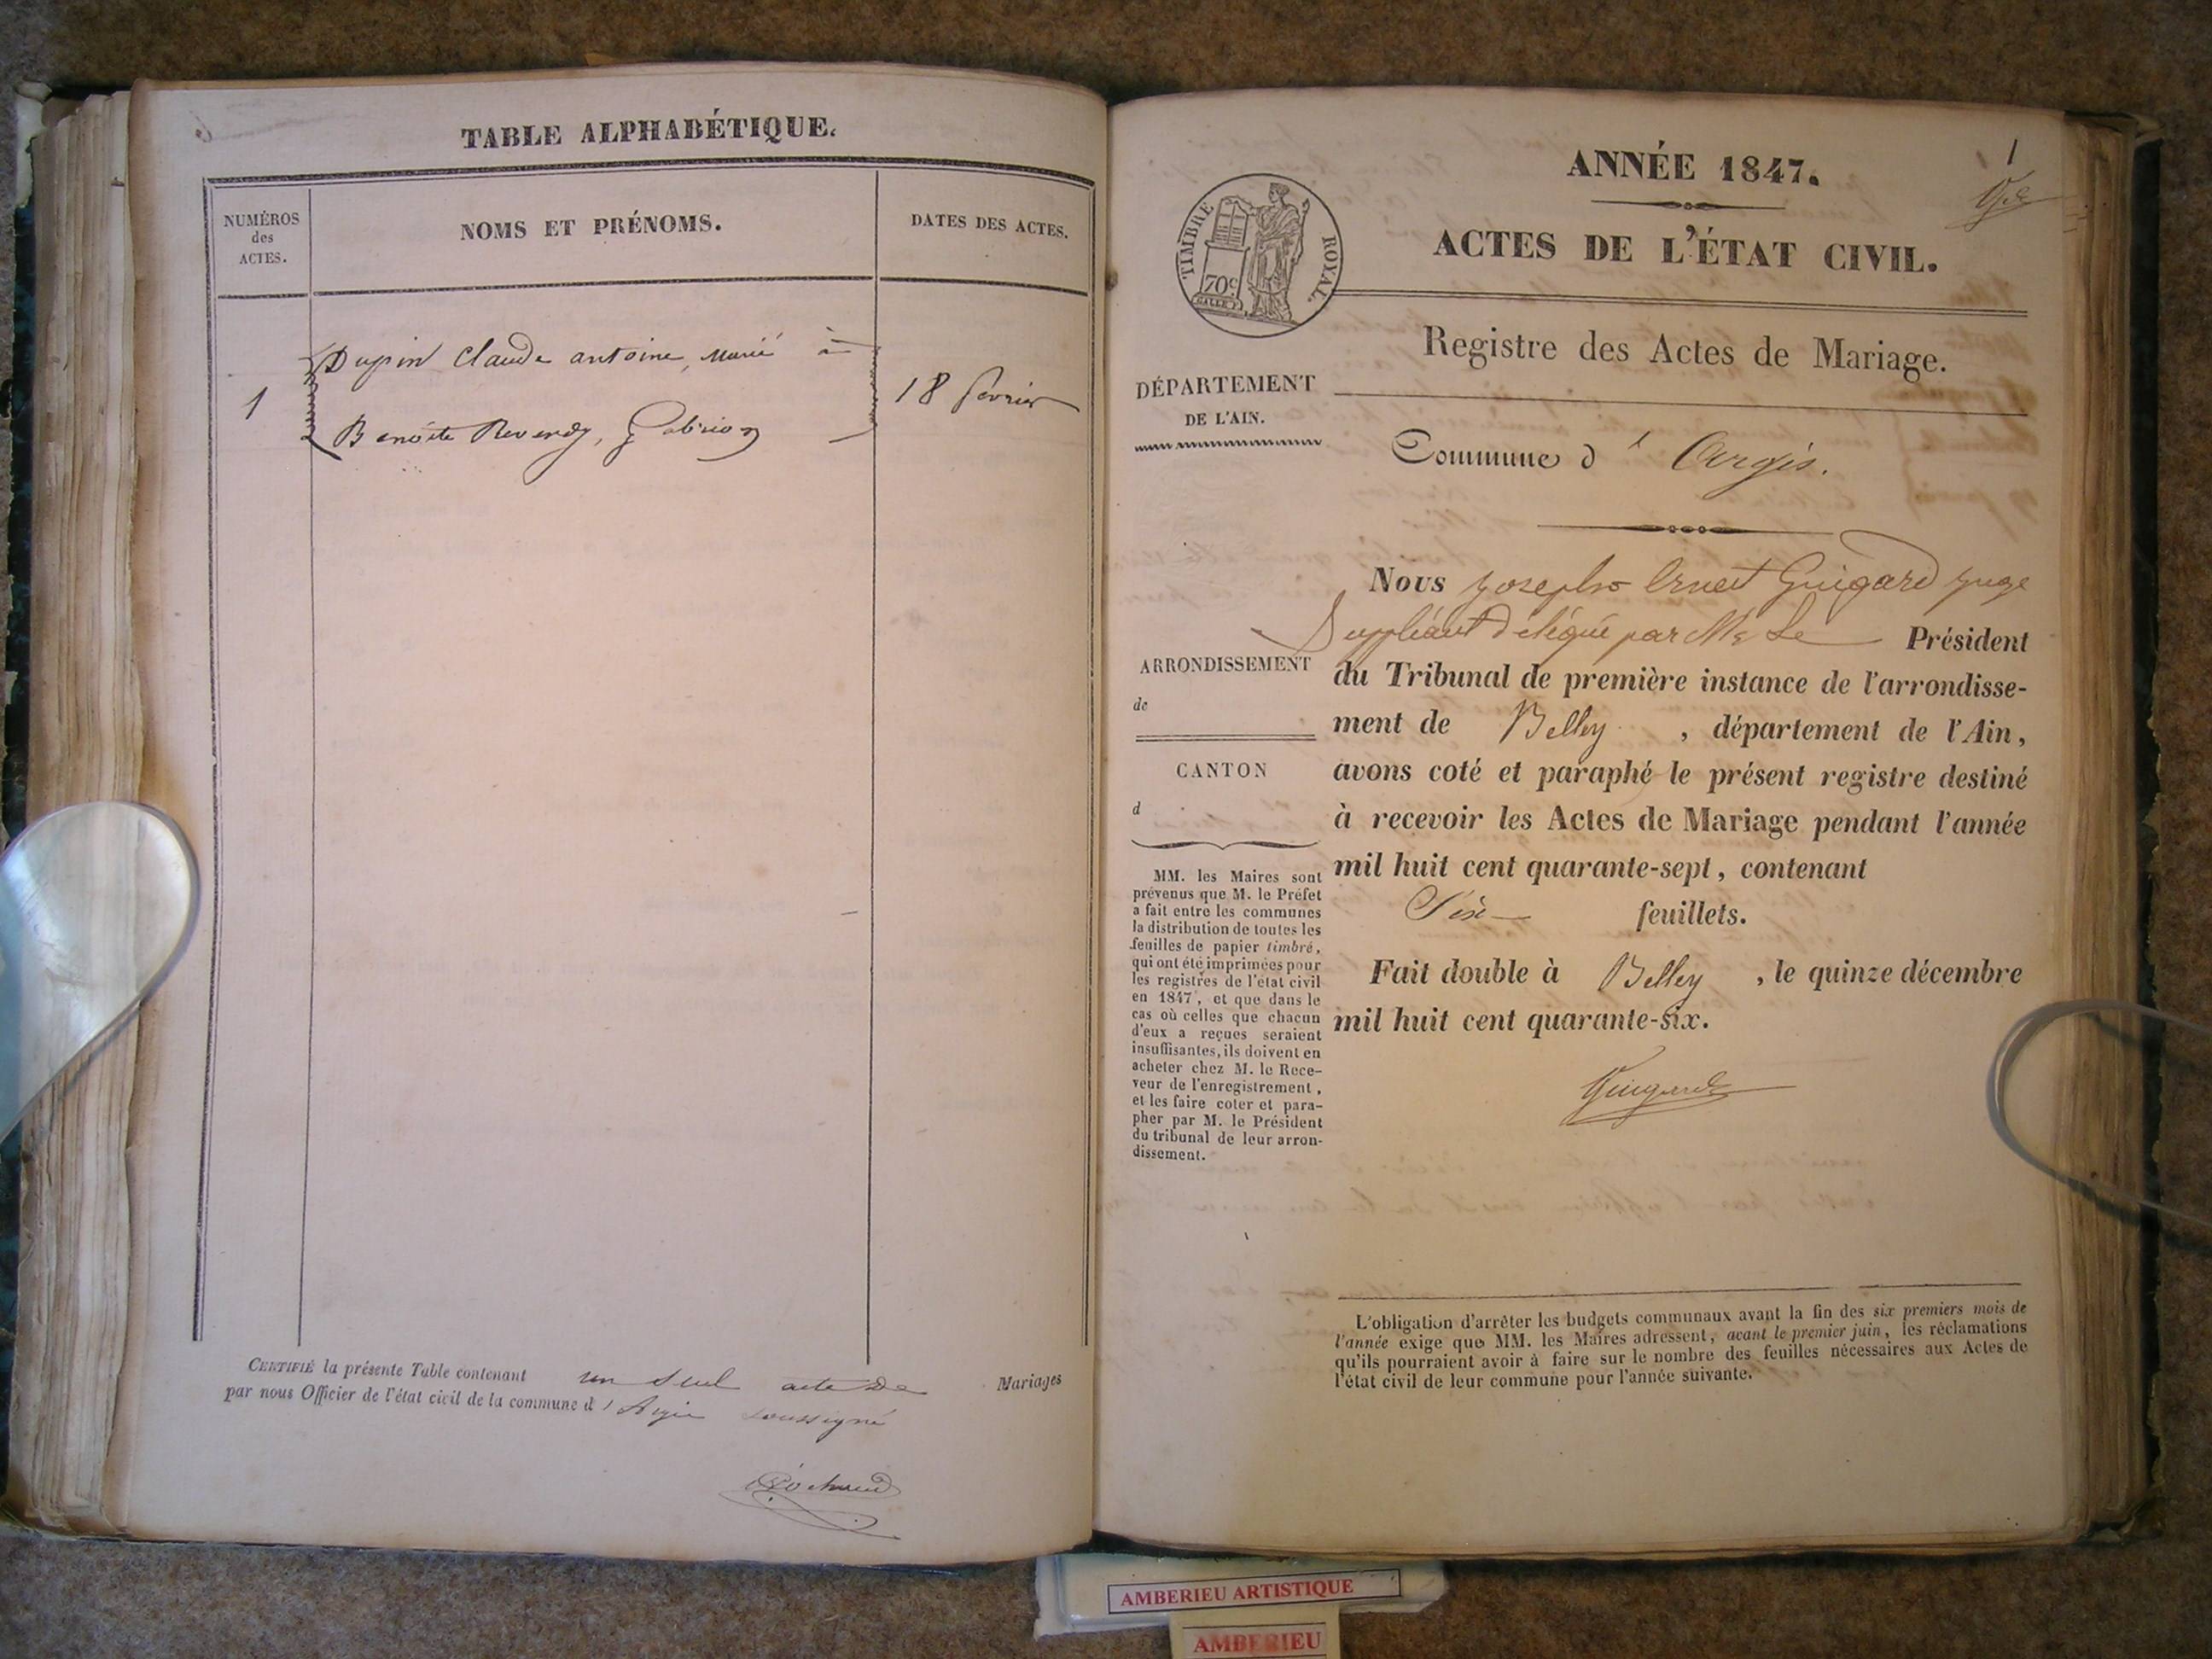 TABLE ALPHABÉTIQUE.
NUMÉROS
des
ACTES.
NOMS ET PRÉNOMS.
DATES DES ACTES.
Dupin Claude antoine, marié à
1
18 février
Benoite
CERTIFIÉ la présente Table contenant un seul acte de Mariages
par nous Officier de l'état civil de la commune d'Argis soussigné
1
ANNÉE 1847.
ACTES DE L'ÉTAT CIVIL.
TIMBRE ROYAL.
70c
Registre des Actes de Mariage.
DÉPARTEMENT
DE L'AIN.
Commune d'Argis.
Nous Joseph Ernest Guigard juge
Suppléant délégué par Mr Le Président
ARRONDISSEMENT
de
du Tribunal de première instance de l'arrondisse-
ment de Belley, département de l'Ain,
CANTON
d
avons coté et paraphé le présent registre destiné
à recevoir les Actes de Mariage pendant l'année
mil huit cent quarante-sept, contenant
Six feuillets.
Fait double à Belley, le quinze décembre
mil huit cent quarante-six.
Guigard
MM. les Maires sont
prévenus que M. le Préfet
a fait entre les communes
la distribution de toutes les
feuilles de papier timbré,
qui ont été imprimées pour
les registres de l'état civil
en 1847, et que dans le
cas où celles que chacun
d'eux a reçues seraient
insuffisantes, ils doivent en
acheter chez M. le Rece-
veur de l'enregistrement,
et les faire coter et para-
pher par M. le Président
du tribunal de leur arron-
dissement.
L'obligation d'arrêter les budgets communaux avant la fin des six premiers mois de
l'année exige que MM. les Maires adressent, avant le premier juin, les réclamations
qu'ils pourraient avoir à faire sur le nombre des feuilles nécessaires aux Actes de
l'état civil de leur commune pour l'année suivante.
AMBERIEU ARTISTIQUE
AMBERIEU